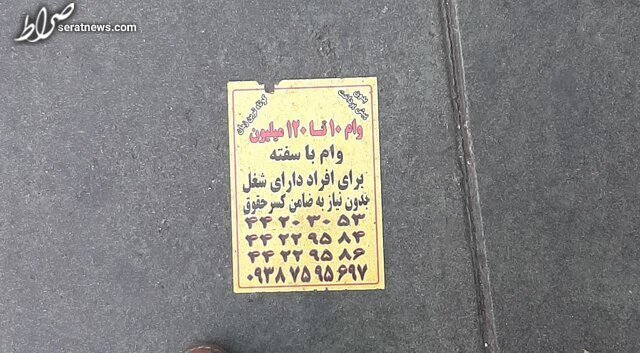 صراط
seratnews.com
بدون پیش پرداخت
کوتاه ترین زمان
وام ۱۰ تا ۱۲۰ میلیون
وام با سفته
برای افراد دارای شغل
بدون نیاز به ضامن کسر حقوق
۴۴۲۰۳۰۵۳
۴۴۲۲۹۵۸۴
۴۴۲۲۹۵۸۶
۰۹۳۸۷۵۹۵۶۹۷